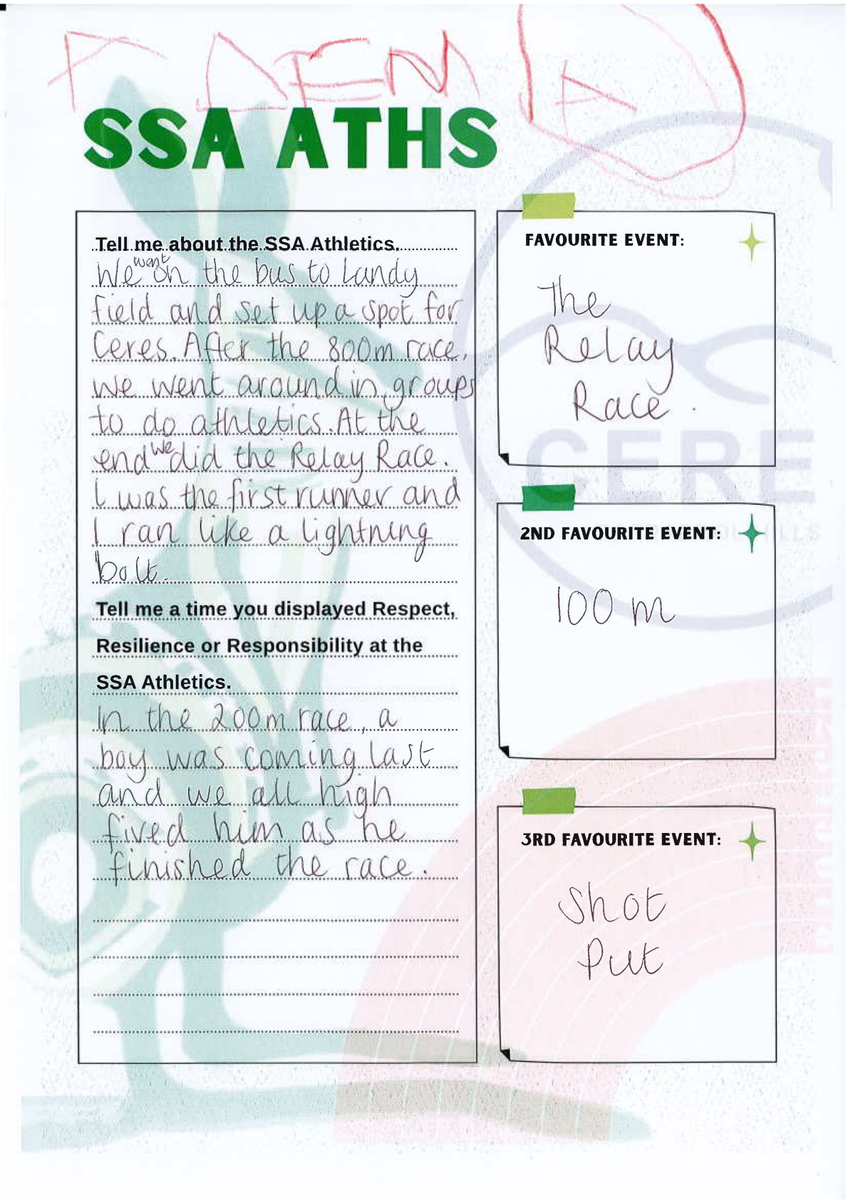 SSA ATHS
Tell me about the SSA Athletics.
We went on the bus to Landy
field and set up a spot for
Ceres. After the 800m race,
we went around in groups
to do athletics. At the
end we did the Relay Race.
I was the first runner and
I ran like a lightning
bolt.
Tell me a time you displayed Respect,
Resilience or Responsibility at the
SSA Athletics.
In the 200m race, a
boy was coming last
and we all high
fived him as he
finished the race.
FAVOURITE EVENT:
The
Relay
Race.
2ND FAVOURITE EVENT:
100 m
3RD FAVOURITE EVENT:
Shot
Put
CERE